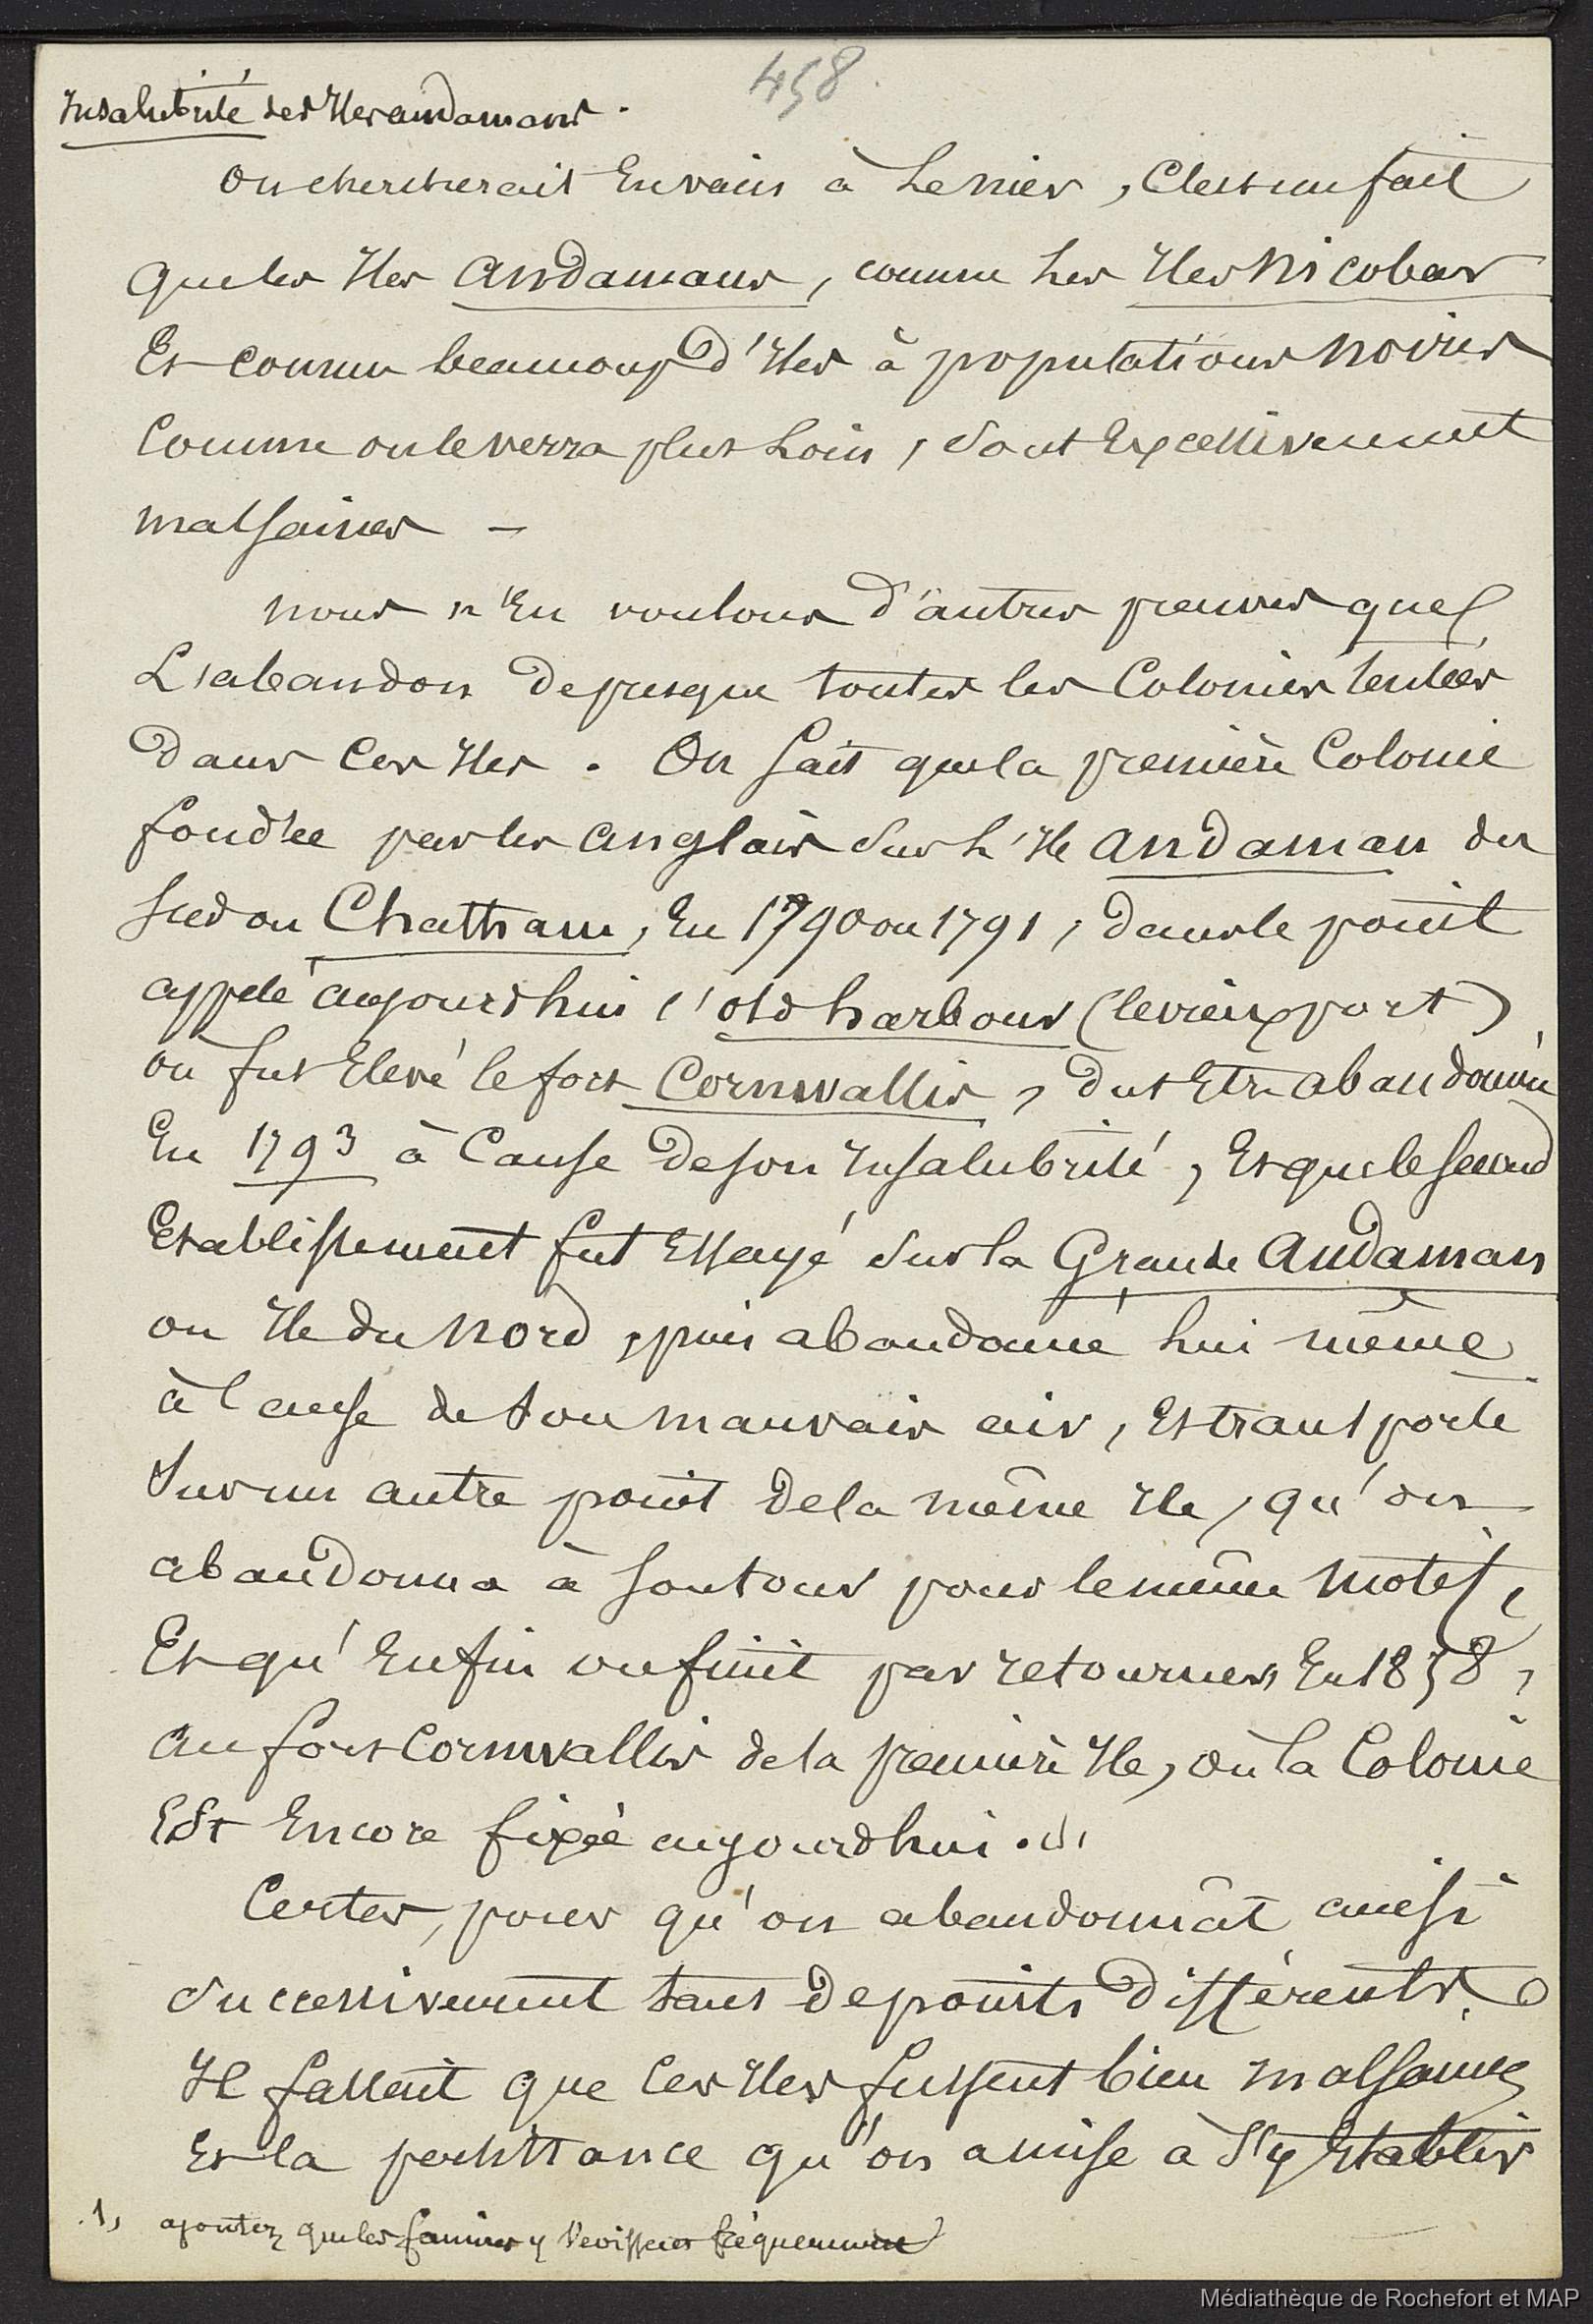 458.
Insalubrité des Iles andamans.
On chercherait En vain à Le nier, C'est un fait
que les Iles Andamans, comme Les Iles Nicobar
Et comme beaucoup d'Iles à populations noires
Comme on le verra plus Loin, Sont Excessivement
malsaines —
nous n'En voulons d'autres preuves que
L'abandon de presque toutes les Colonies tentées
dans Ces Iles. On sait que la première Colonie
fondée par les anglais Sur L'Ile Andaman du
sud ou Chattram, En 1790 ou 1791, dans le point
appelé aujourdhui l'old harbour (le vieux port)
où fut Elevé le fort Cornwallis, dut Etre abandonné
En 1793 à Cause de son Insalubrité, Et que le second
Etablissement fut Essayé Sur la Grande Andaman
ou Ile du nord, puis abandonné Lui même
à Cause de Son mauvais air, Et transporté
Sur un autre point de la même Ile, qu'on
abandonna à son tour pour le même motif,
Et qu'Enfin on finit par retourner, En 1858,
au fort Cornwallis de la première Ile, où la Colonie
Est Encore fixée aujourdhui. (1)
Certes, pour qu'on abandonnât ainsi
Successivement tant de points différents,
Il fallait que Ces Iles fussent bien malsaines
Et la persistance qu'on a mise à S'y Etablir
1, ajoutez que les famines y sevissent fréquemment
Médiathèque de Rochefort et MAP